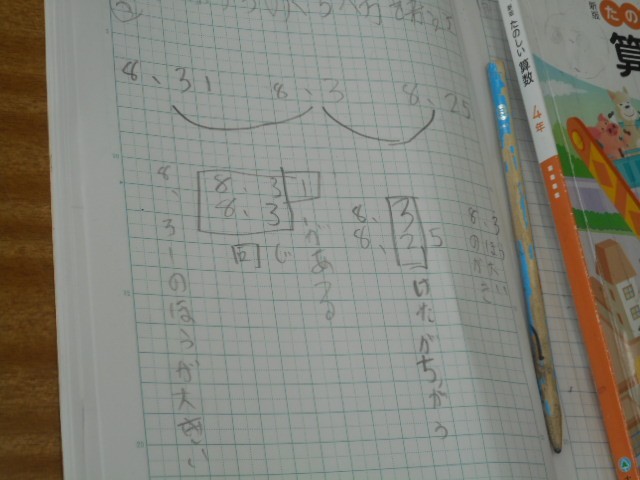 ②
8、31 8、3 8、25
8、31
8、3
同じ
、があある
8、31のほうが大きい
8、3
8、25
けたがちがう
8、3
のほう
が大
きい
たのしい算数 4年
新版
たの
算